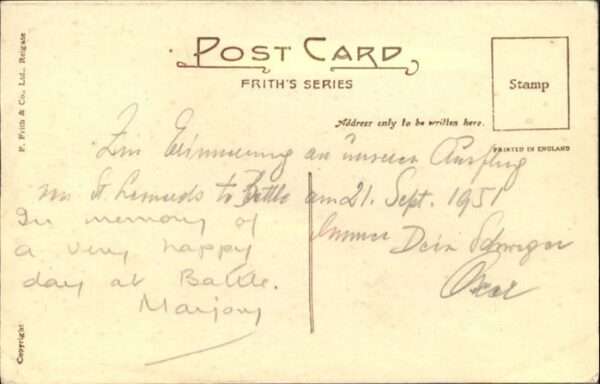 POST CARD
FRITH'S SERIES
Stamp
Address only to be written here.
PRINTED IN ENGLAND
F. Frith & Co., Ltd., Reigate
Zur Erinnerung an unseren Ausflug
von St. Leonards to Battle am 21. Sept. 1951
In memory of
a very happy
day at Battle.
Marjory
Immer Dein Schwager
Oscar
Copyright